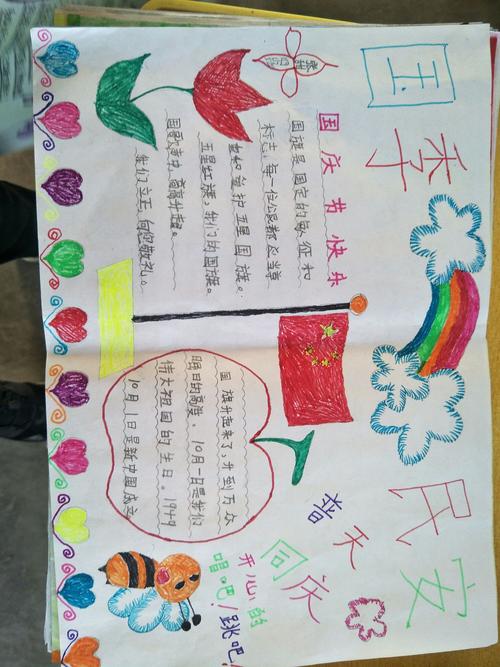 国泰民安
国庆节快乐
国旗是固定的象征和
标志，每一位公民都应当尊
重和爱护五星国旗。
五星红旗，我们的国旗。
国歌声中，高高升起。
我们立正，向您敬礼。
国旗升起来了，升到万众
瞩目的高度。10月一日是我们
伟大祖国的生日。1949
10月1日是新中国成立
普天同庆
开心的
唱吧！跳吧！